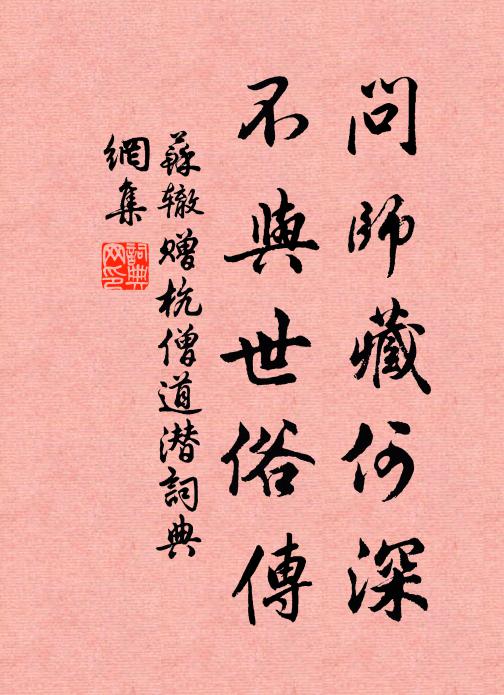 問師藏何深
不與世俗傳
蘇辙赠杭僧道潜詞典
網集
詞典
网印